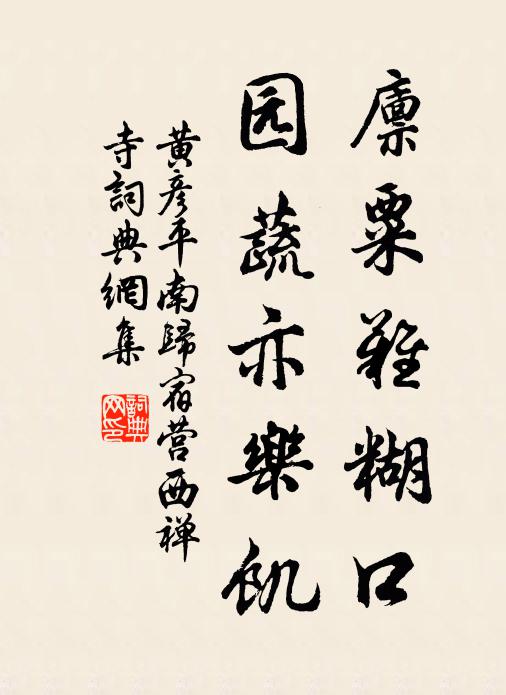 廪粟难糊口
园蔬亦樂飢
黄彦平南歸宿营西禅
寺詞典網集
詞典网印